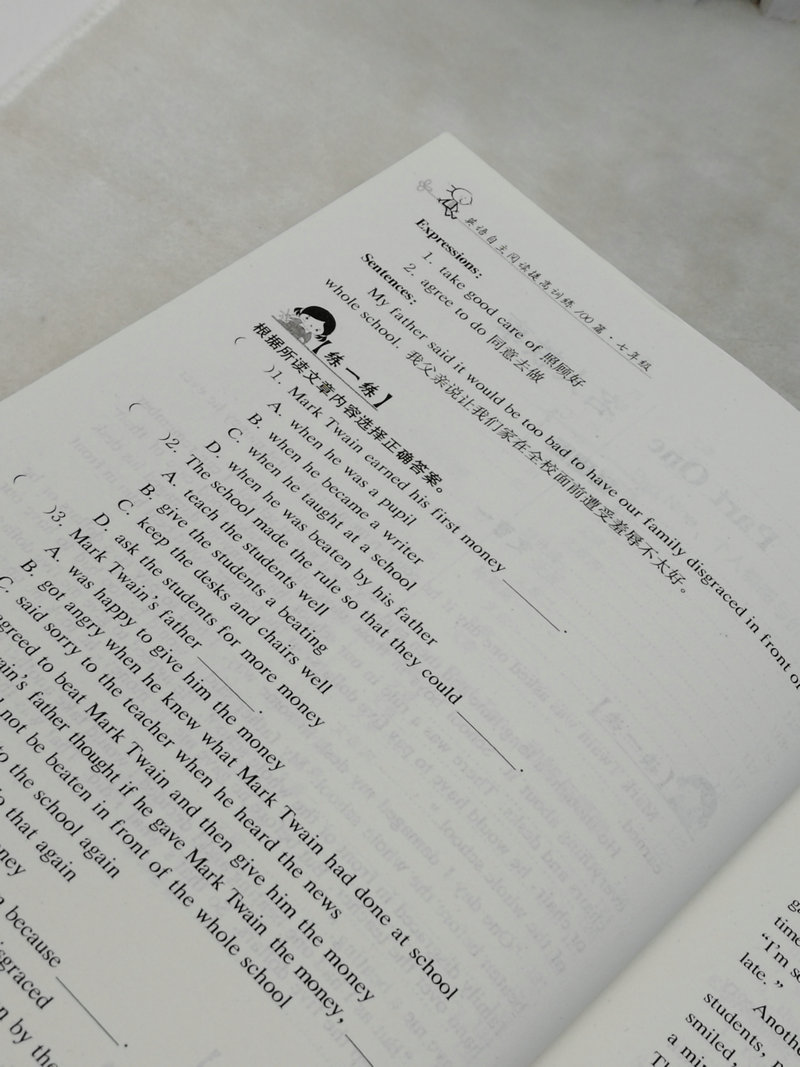 英语自主阅读提高训练100篇·七年级
Expressions:
1. take good care of 照顾好
2. agree to do 同意去做
Sentences:
My father said it would be too bad to have our family disgraced in front of
whole school. 我父亲说让我们家在全校面前遭受羞辱不太好。
【练一练】
根据所读文章内容选择正确答案。
( )1. Mark Twain earned his first money ______.
A. when he was a pupil
B. when he became a writer
C. when he taught at a school
D. when he was beaten by his father
( )2. The school made the rule so that they could ______.
A. teach the students well
B. give the students a beating
C. keep the desks and chairs well
D. ask the students for more money
( )3. Mark Twain's father ______.
A. was happy to give him the money
B. got angry when he knew what Mark Twain had done at school
C. said sorry to the teacher when he heard the news
agreed to beat Mark Twain and then give him the money
father thought if he gave Mark Twain the money, ______
not be beaten in front of the whole school
to the school again
that again
because ______.
by the
time
"I'm
late."
students,
smiled,
a